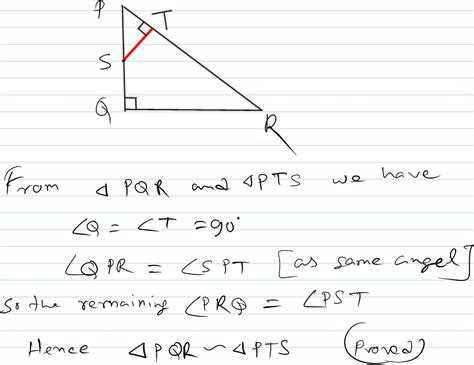 P
T
S
Q
R
From △PQR and △PTS we have
∠Q = ∠T = 90°
∠QPR = ∠SPT [as same angel]
So the remaining ∠PRQ = ∠PST
Hence △PQR ∼ △PTS (Proved)